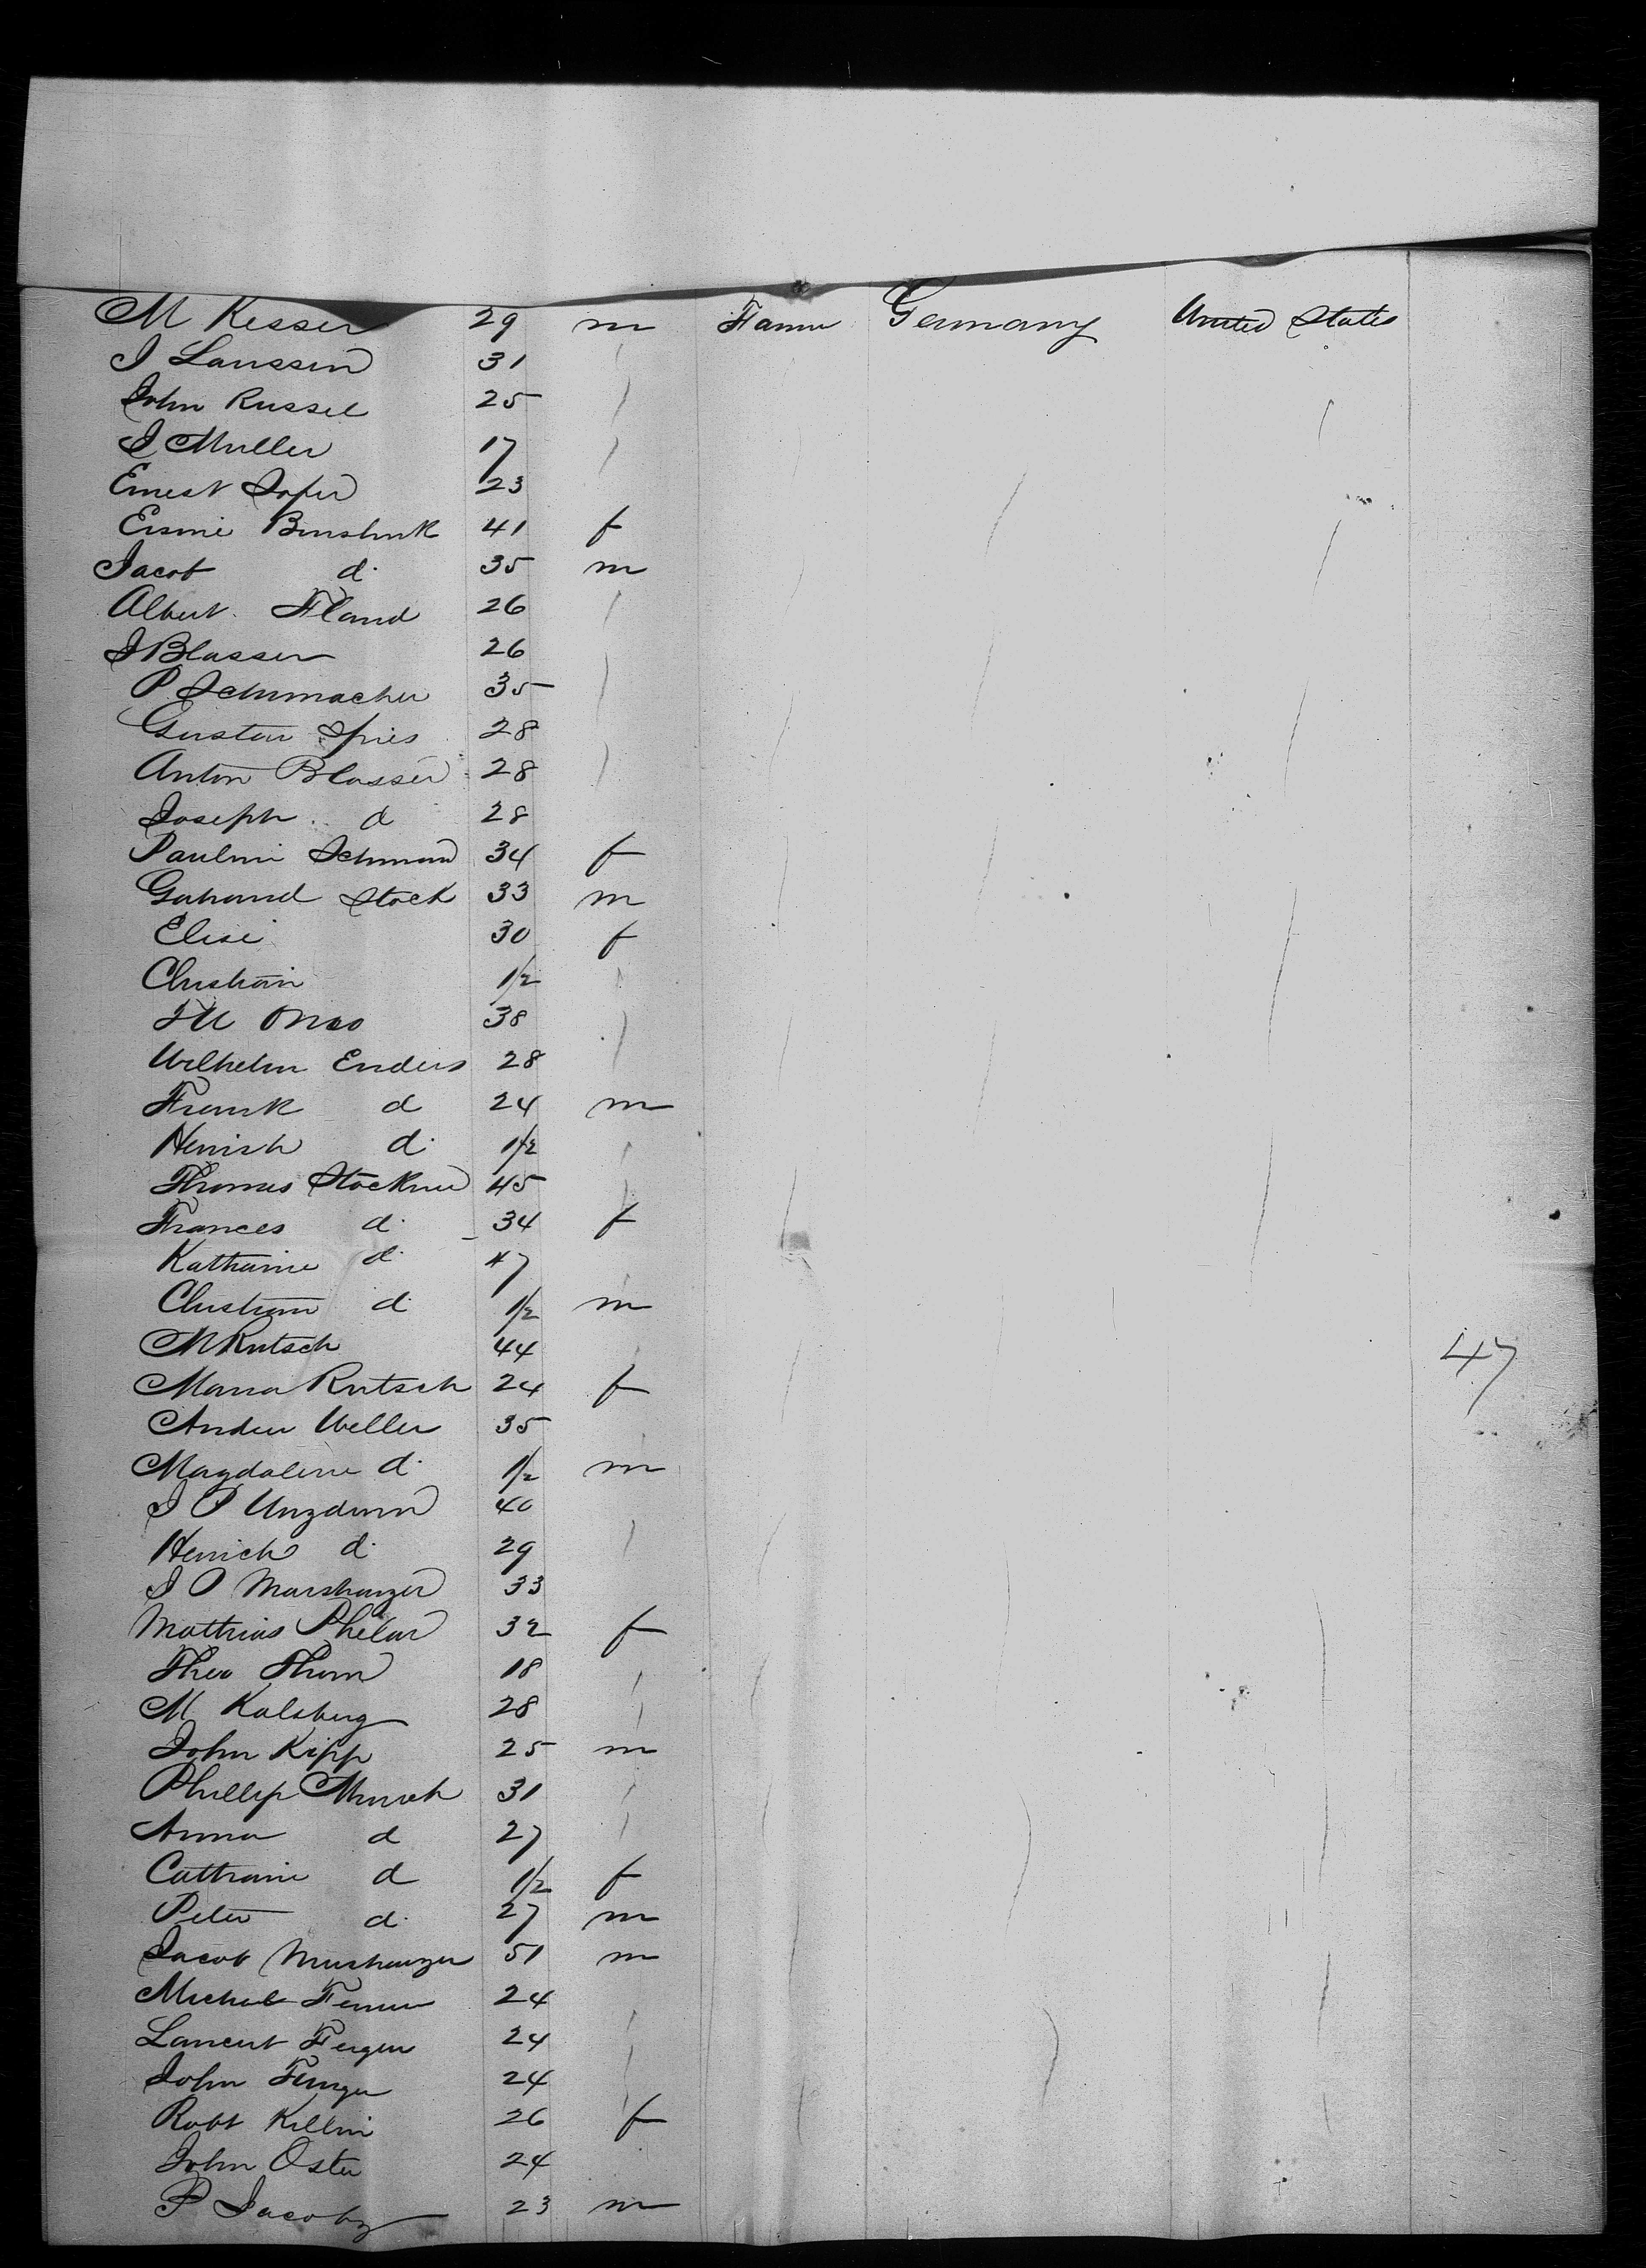 M Kesser 29 m Farmer Germany United States
J Lanssen 31
John Russel 25
J Muller 17
Ernest Sofer 23
41 f
Jacob d. 35 m
Albert Fland 26
J Blasser 26
P Schumacher 35
Gustav Spies 28
Anton Blasser 28
Joseph d 28
Paulini 34 f
Stock 33 m
Elise 30 f
Christian 1/2
38
Wilhelm Enders 28
Frank d 24 m
Henrich d. 1/2
Thomas Stockner 45
Frances d. 34 f
Katharine d. 7
Christian d. 1/2 m
M Rutsch 44
47
Maria Rutsch 24 f
Andrew Weller 35
Magdalene d. 1/2 m
J P 40
Henrich d. 29
J P Marshanzer 33
Mathias Phelar 32 f
Theo Thom 18
M Kalsberg 28
John Kipp 25 m
Phillip Munch 31
Anna d 27
Cathraine d 1/2 f
Peter d. 27 m
Jacob Mushanzer 51 m
Michal 24
Fergen 24
John 24
Robt Killin 26 f
John Oster 24
P Jacoby 23 m